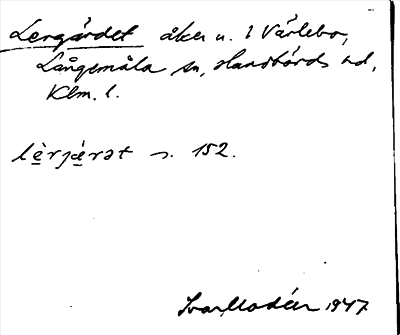 Lergärdet åker u. 1 Värlebo,
Långemåla sn, Handbörds hd,
Klm. l.
lè̱rjä̱rət s. 152.
Ivar Modéer 1947